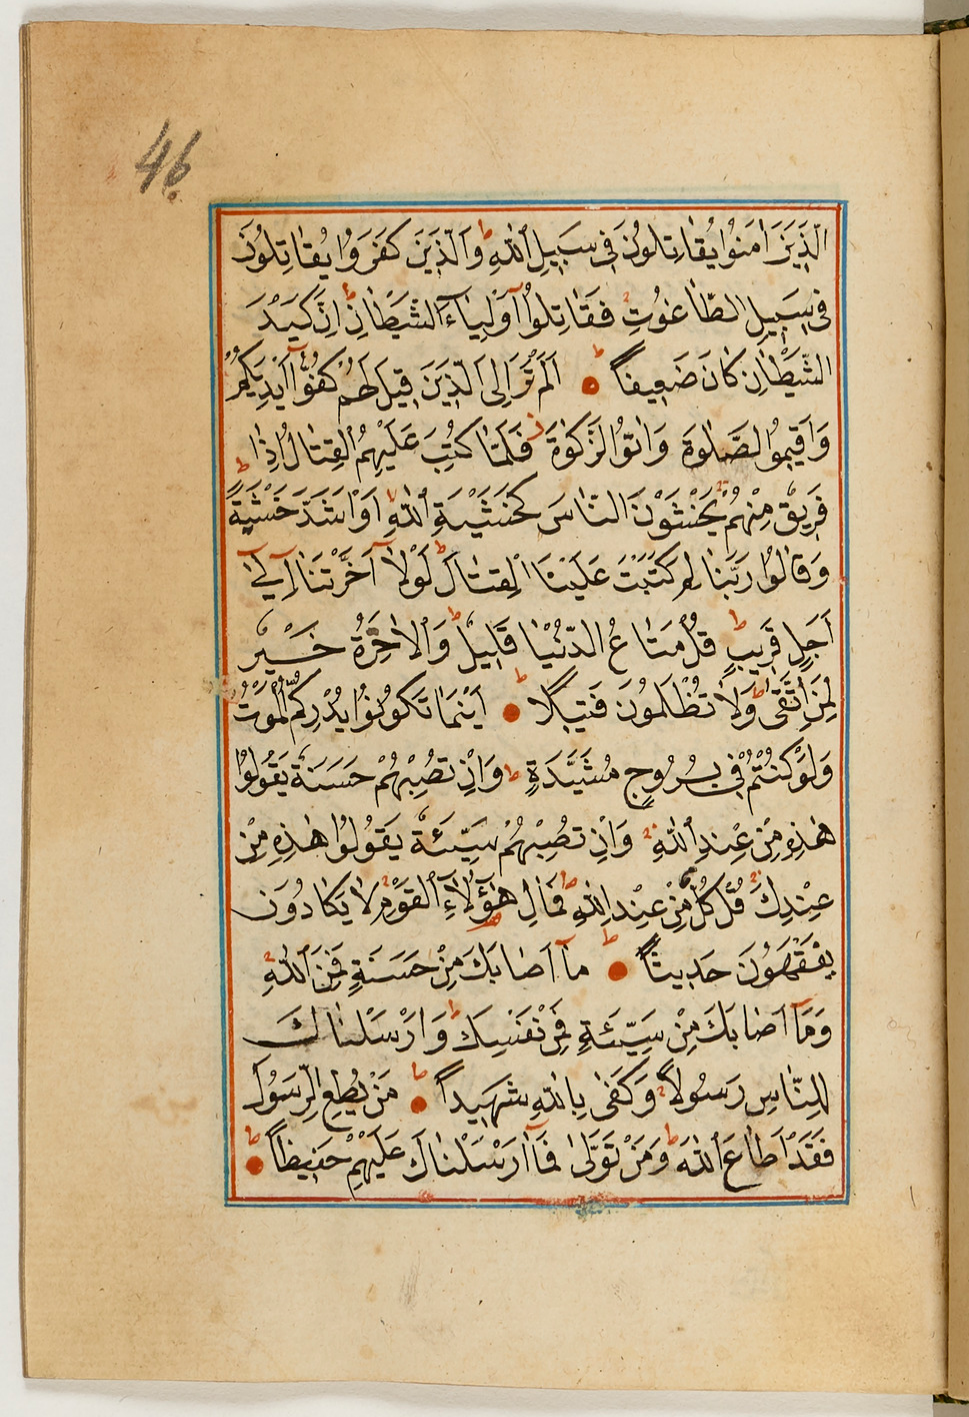 46
الَّذِينَ اٰمَنُوا يُقَاتِلُونَ فِي سَبِيلِ اللّٰهِ وَالَّذِينَ كَفَرَوُا يُقَاتِلُونَ
فِي سَبِيلِ الطَّاغُوتِ فَقَاتِلُوا أَوْلِيَاءَ الشَّيْطَانِ اِنَّ كَيْدَ
الشَّيْطَانِ كَانَ ضَعِيفاً اَلَمْ تَرَ اِلَى الَّذِينَ قِيلَ لَهُمْ كُفُّوا اَيْدِيَكُمْ
وَاَقِيمُوا الصَّلٰوةَ وَاٰتُوا الزَّكٰوةَ فَلَمَّا كُتِبَ عَلَيْهِمُ الْقِتَالُ اِذَا
فَرِيقٌ مِنْهُمْ يَخْشَوْنَ النَّاسَ كَخَشْيَةِ اللّٰهِ اَوْ اَشَدَّ خَشْيَةً
وَقَالُوا رَبَّنَا لِمَ كَتَبْتَ عَلَيْنَا الْقِتَالَ لَوْلَا اَخَّرْتَنَا اِلٰى
اَجَلٍ قَرِيبٍ قُلْ مَتَاعُ الدُّنْيَا قَلِيلٌ وَالْاٰخِرَةُ خَيْرٌ
لِمَنِ اتَّقٰى وَلَا تُظْلَمُونَ فَتِيلًا اَيْنَمَا تَكُونُوا يُدْرِكْكُمُ الْمَوْتُ
وَلَوْ كُنْتُمْ فِي بُرُوجٍ مُشَيَّدَةٍ وَاِنْ تُصِبْهُمْ حَسَنَةٌ يَقُولُوا
هٰذِهِ مِنْ عِنْدِ اللّٰهِ وَاِنْ تُصِبْهُمْ سَيِّئَةٌ يَقُولُوا هٰذِهِ مِنْ
عِنْدِكَ قُلْ كُلٌّ مِنْ عِنْدِ اللّٰهِ فَمَالِ هٰؤُلَاءِ الْقَوْمِ لَا يَكَادُونَ
يَفْقَهُونَ حَدِيثاً مَا اَصَابَكَ مِنْ حَسَنَةٍ فَمِنَ اللّٰهِ
وَمَا اَصَابَكَ مِنْ سَيِّئَةٍ فَمِنْ نَفْسِكَ وَاَرْسَلْنَاكَ
لِلنَّاسِ رَسُولاً وَكَفٰى بِاللّٰهِ شَهِيداً مَنْ يُطِعِ الرَّسُولَ
فَقَدْ اَطَاعَ اللّٰهَ وَمَنْ تَوَلّٰى فَمَا اَرْسَلْنَاكَ عَلَيْهِمْ حَفِيظاً